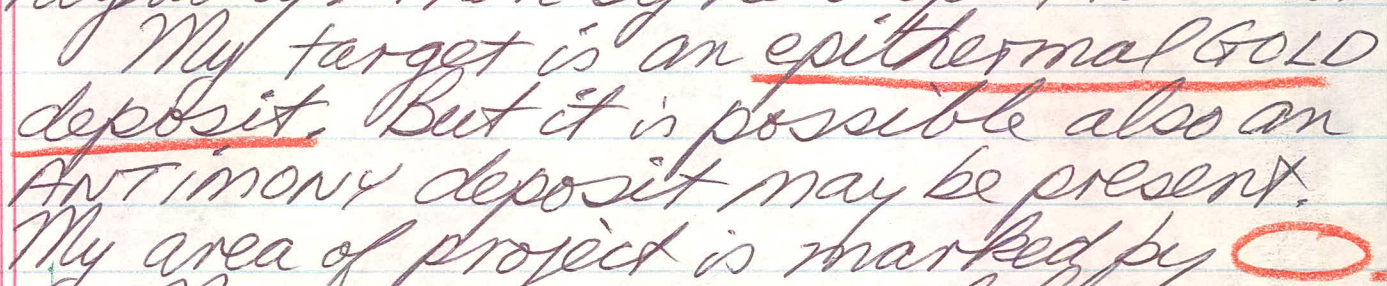 My target is an epithermal GOLD
deposit. But it is possible also an
ANTIMONY deposit may be present.
My area of project is marked by